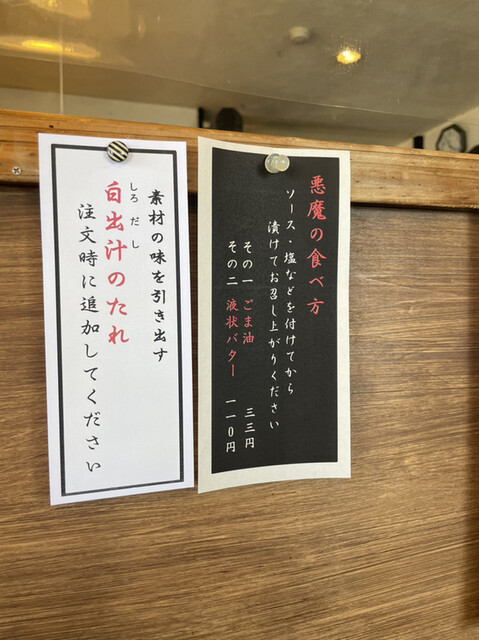 悪魔の食べ方
ソース・塩などを付けてから
漬けてお召し上がりください
その一 ごま油 三三円
その二 液状バター 一一〇円
素材の味を引き出す
しろ だし
白出汁のたれ
注文時に追加してください